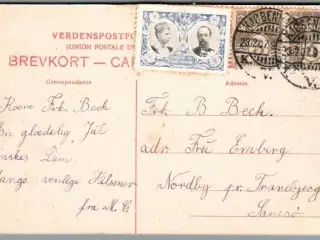 VERDENSPOSTFO
(UNION POSTALE U
BREVKORT — CA
Correspondance
Adresse
Kære Frk. Beck
En glædelig Jul
ønskes Dem
mange venlige Hilsener
fra M. C
Frk B Beck.
adr. Fru Emberg
Nordby pr. Tranebjerg
Samsø